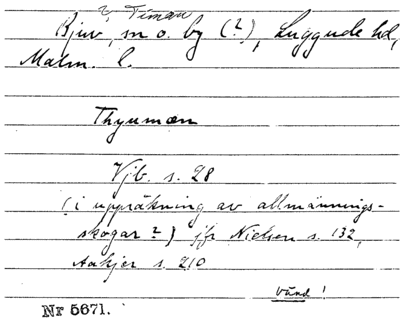 ? Timan
Bjuv, sn o. by (?), Luggude hd,
Malm. l.
Thyumæn
Vjb. s. 28
(i uppräkning av allmännings-
skogar?) jfr Nielsen s. 132,
Aakjær s. 210
vänd!
Nr 5671.